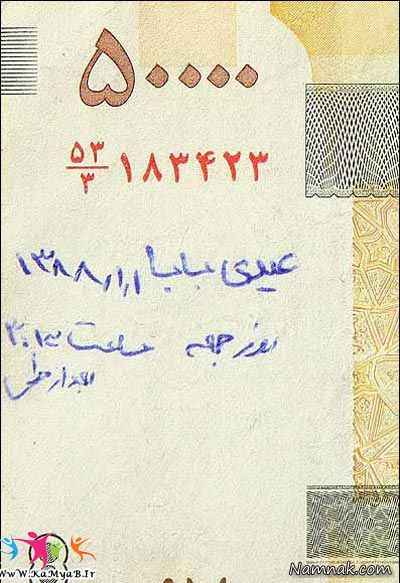 ۵۰۰۰۰
۵۳/۳ ۱۸۳۴۲۳
عیدی بابا ۱/۱/۱۳۸۸
روز جمعه ساعت ۳:۱۳
بعد از ظهر
www.KaMyaB.Ir
Namnak.com